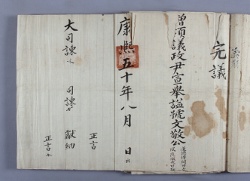 完議
贈領議政尹宣擧謚號文敬公
康熙五十年八月 日
大司諫
司諫
獻納
正言
正言